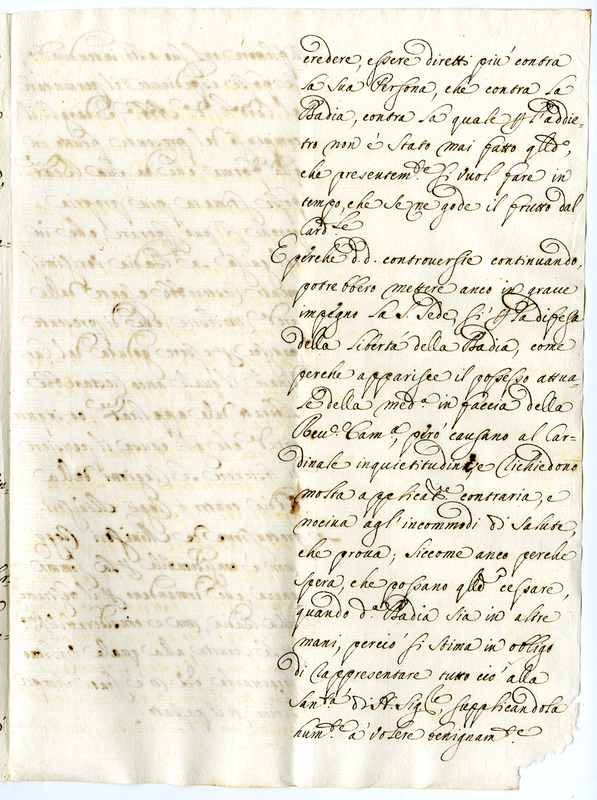 credere, essere diretti piu' contra
la sua Persona, che contra la
Badia, contra la quale p l'addie-
tro non è stato mai fatto qllo,
che presentem.te si vuol fare in
tempo, che se ne gode il frutto dal
Card.le
E perche d.d. controversie continuando,
potrebbero mettere anco in grave
impegno la S. Sede, si p la difesa
della libertà della Badia, come
perche apparisce il possesso attua-
le della med.a in faccia della
Reu.da Cam.a, però causano al Car-
dinale inquietitudini, e richiedono
molta applicat.ne contraria, e
nociva agl'incommodi di salute
che prova; siccome anco perche
spera, che possano qlle cessare,
quando d.a Badia sia in altre
mani, perciò si stima in obligo
di rappresentare tutto ciò alla
San.tà di N. Sig.re supplicandola
hum.te a' volere benignam.te